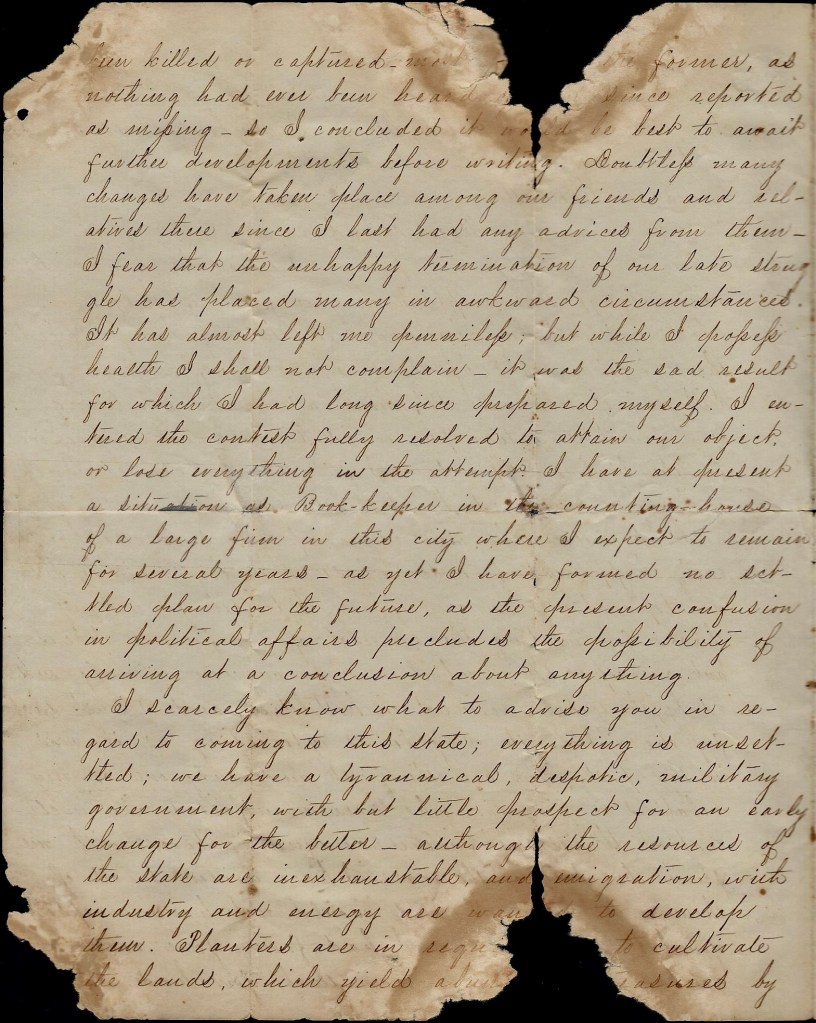 been killed or captured – most former, as
nothing had ever been heard since reported
as missing – so I concluded it would be best to await
further developments before writing. Doubtless many
changes have taken place among our friends and rel-
atives there since I last had any advices from them –
I fear that the unhappy termination of our late strug
gle has placed many in awkward circumstances.
It has almost left me penniless, but while I possess
health I shall not complain – it was the sad result
for which I had long since prepared myself. I en-
tered the contest fully resolved to attain our object,
or lose everything in the attempt. I have at present
a situation as Book-keeper in the counting-house
of a large firm in this city where I expect to remain
for several years – as yet I have formed no set-
tled plan for the future, as the present confusion
in political affairs precludes the possibility of
arriving at a conclusion about anything.
I scarcely know what to advise you in re-
gard to coming to this state; everything is unset-
tled; we have a tyrannical, despotic, military
government, with but little prospect for an early
change for the better – although the resources of
the state are inexhaustable, and emigration, with
industry and energy are wanted to develop
them. Planters are in to cultivate
the lands, which yield by